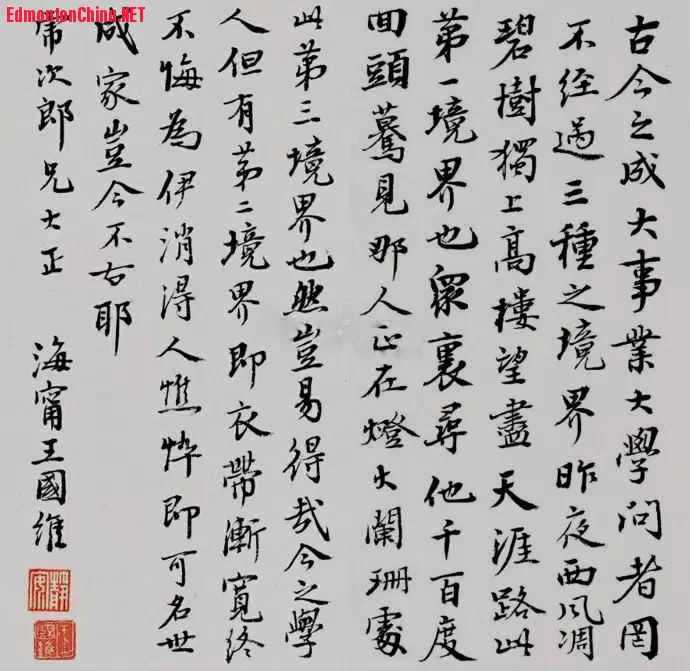 EdmontonChina.NET
古今之成大事業大學問者罔
不經過三種之境界昨夜西風凋
碧樹獨上高樓望盡天涯路此
第一境界也眾裏尋他千百度
回頭驀見那人正在燈火闌珊處
此第三境界也然豈易得哉今之學
人但有第二境界即衣帶漸寬終
不悔為伊消得人憔悴即可名世
成家豈今不古耶
次郎兄大正 海甯王國維
靜安
王國維